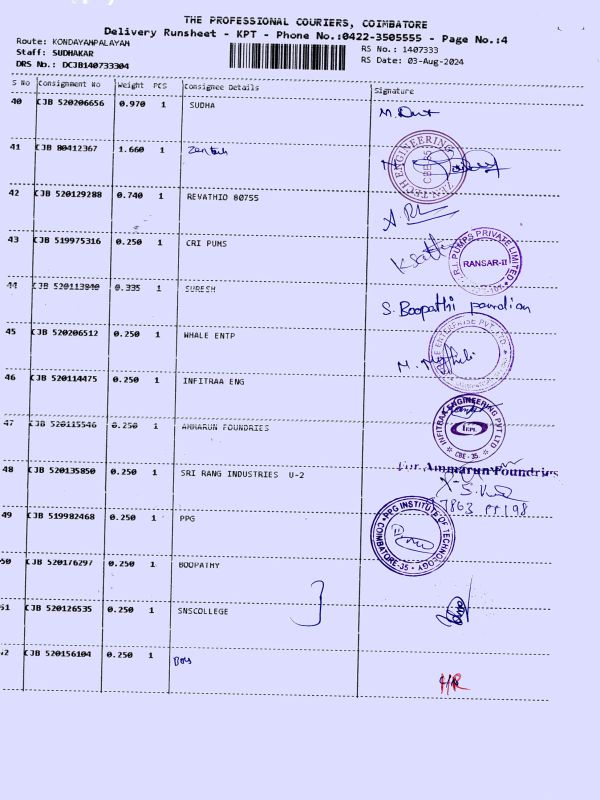 THE PROFESSIONAL COURIERS, COIMBATORE
Delivery Runsheet - KPT - Phone No.:0422-3505555 - Page No.:4
Route: KONDAYAMPALAYAM
Staff: SUDHAKAR
DRS No.: DCJB140733304
RS No.: 1407333
RS Date: 03-Aug-2024
S No Consignment No Weight PCS Consignee Details Signature
40 CJB 520206656 0.970 1 SUDHA
41 CJB 80412367 1.660 1 Zentech
ZEN TECH ENGINEERING
CBE-35
42 CJB 520129288 0.740 1 REVATHIO 80755
43 CJB 519975316 0.250 1 CRI PUMS
R.I. PUMPS PRIVATE LIMITED
RANSAR-II
44 CJB 520113840 0.335 1 SURESH S. Boopathi pandian
45 CJB 520206512 0.250 1 WHALE ENTP
ENTERPRISE PVT. LTD
46 CJB 520114475 0.250 1 INFITRAA ENG
INFITRAA ENGINEERING PVT LTD
CBE-35
47 CJB 520115546 0.250 1 AMMARUN FOUNDRIES
For Ammarun Foundries
48 CJB 520135850 0.250 1 SRI RANG INDUSTRIES U-2
49 CJB 519982468 0.250 1 PPG
PPG INSTITUTE OF TECHNOLOGY
COIMBATORE-35
50 CJB 520176297 0.250 1 BOOPATHY
51 CJB 520126535 0.250 1 SNSCOLLEGE
CJB 520156104 0.250 1